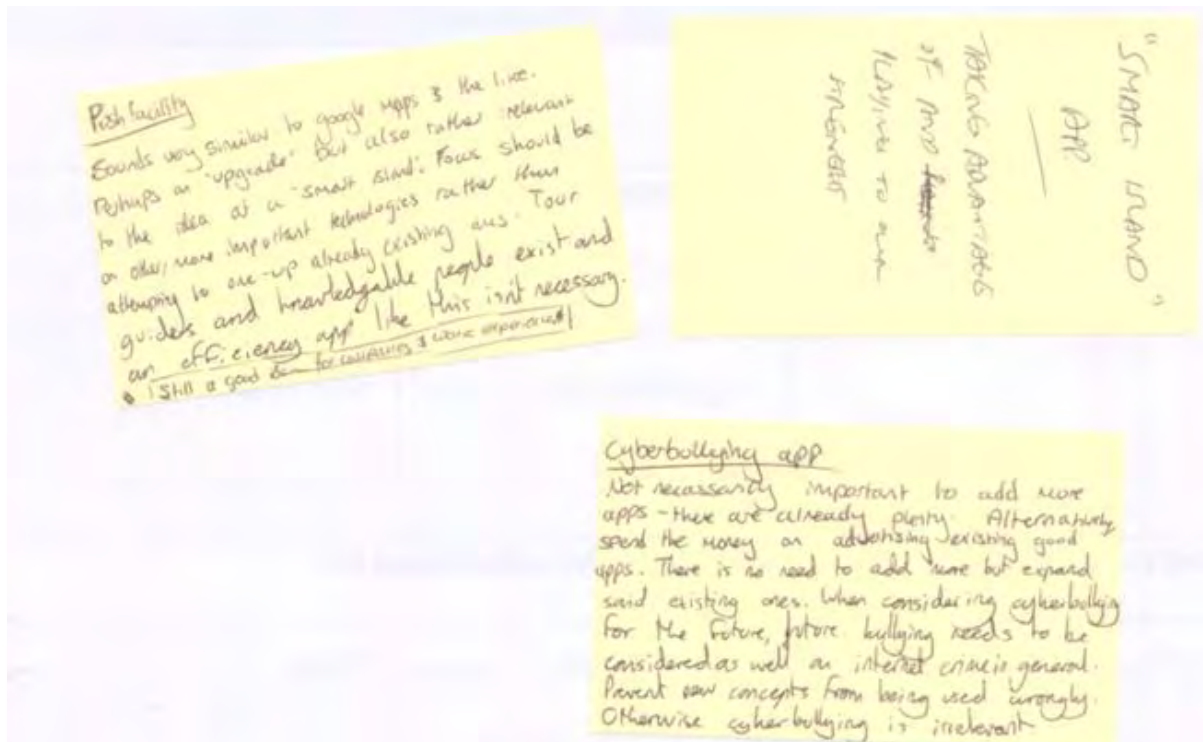 Push facility
Sounds very similar to google maps & the like.
Perhaps an "upgrade" but also rather relevant
to the idea of a "smart island". Focus should be
on other, more important technologies rather than
attempting to one-up already existing ones. Tour
guides and knowledgable people exist and
an efficiency app like this isn't necessary.
Still a good for companies & work experience
"SMART ISLAND"
APP
TAKING ADVANTAGES
OF AND
PLAYING TO OUR
STRENGTHS
Cyberbullying app
Not necassarily important to add more
apps - there are already plenty. Alternatively,
spend the money on advertising existing good
apps. There is no need to add more but expand
said existing ones. When considering cyberbullying
for the future, future bullying needs to be
considered as well as internet crime in general.
Prevent new concepts from being used wrongly.
Otherwise cyberbullying is irrelevant